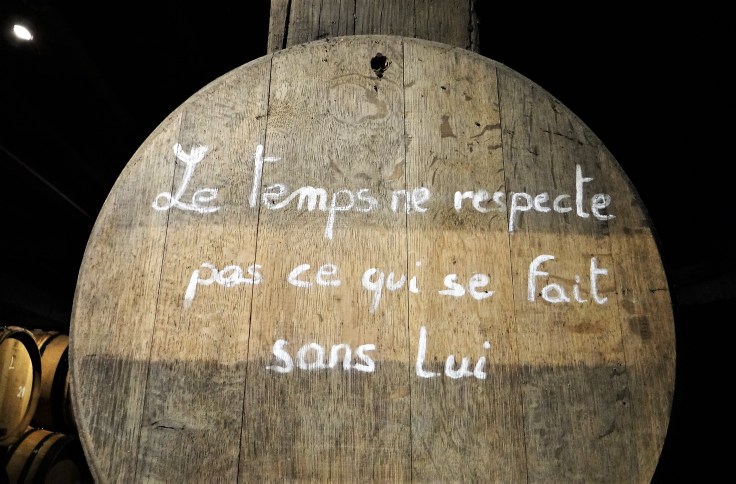 Le temps ne respecte
pas ce qui se fait
sans Lui